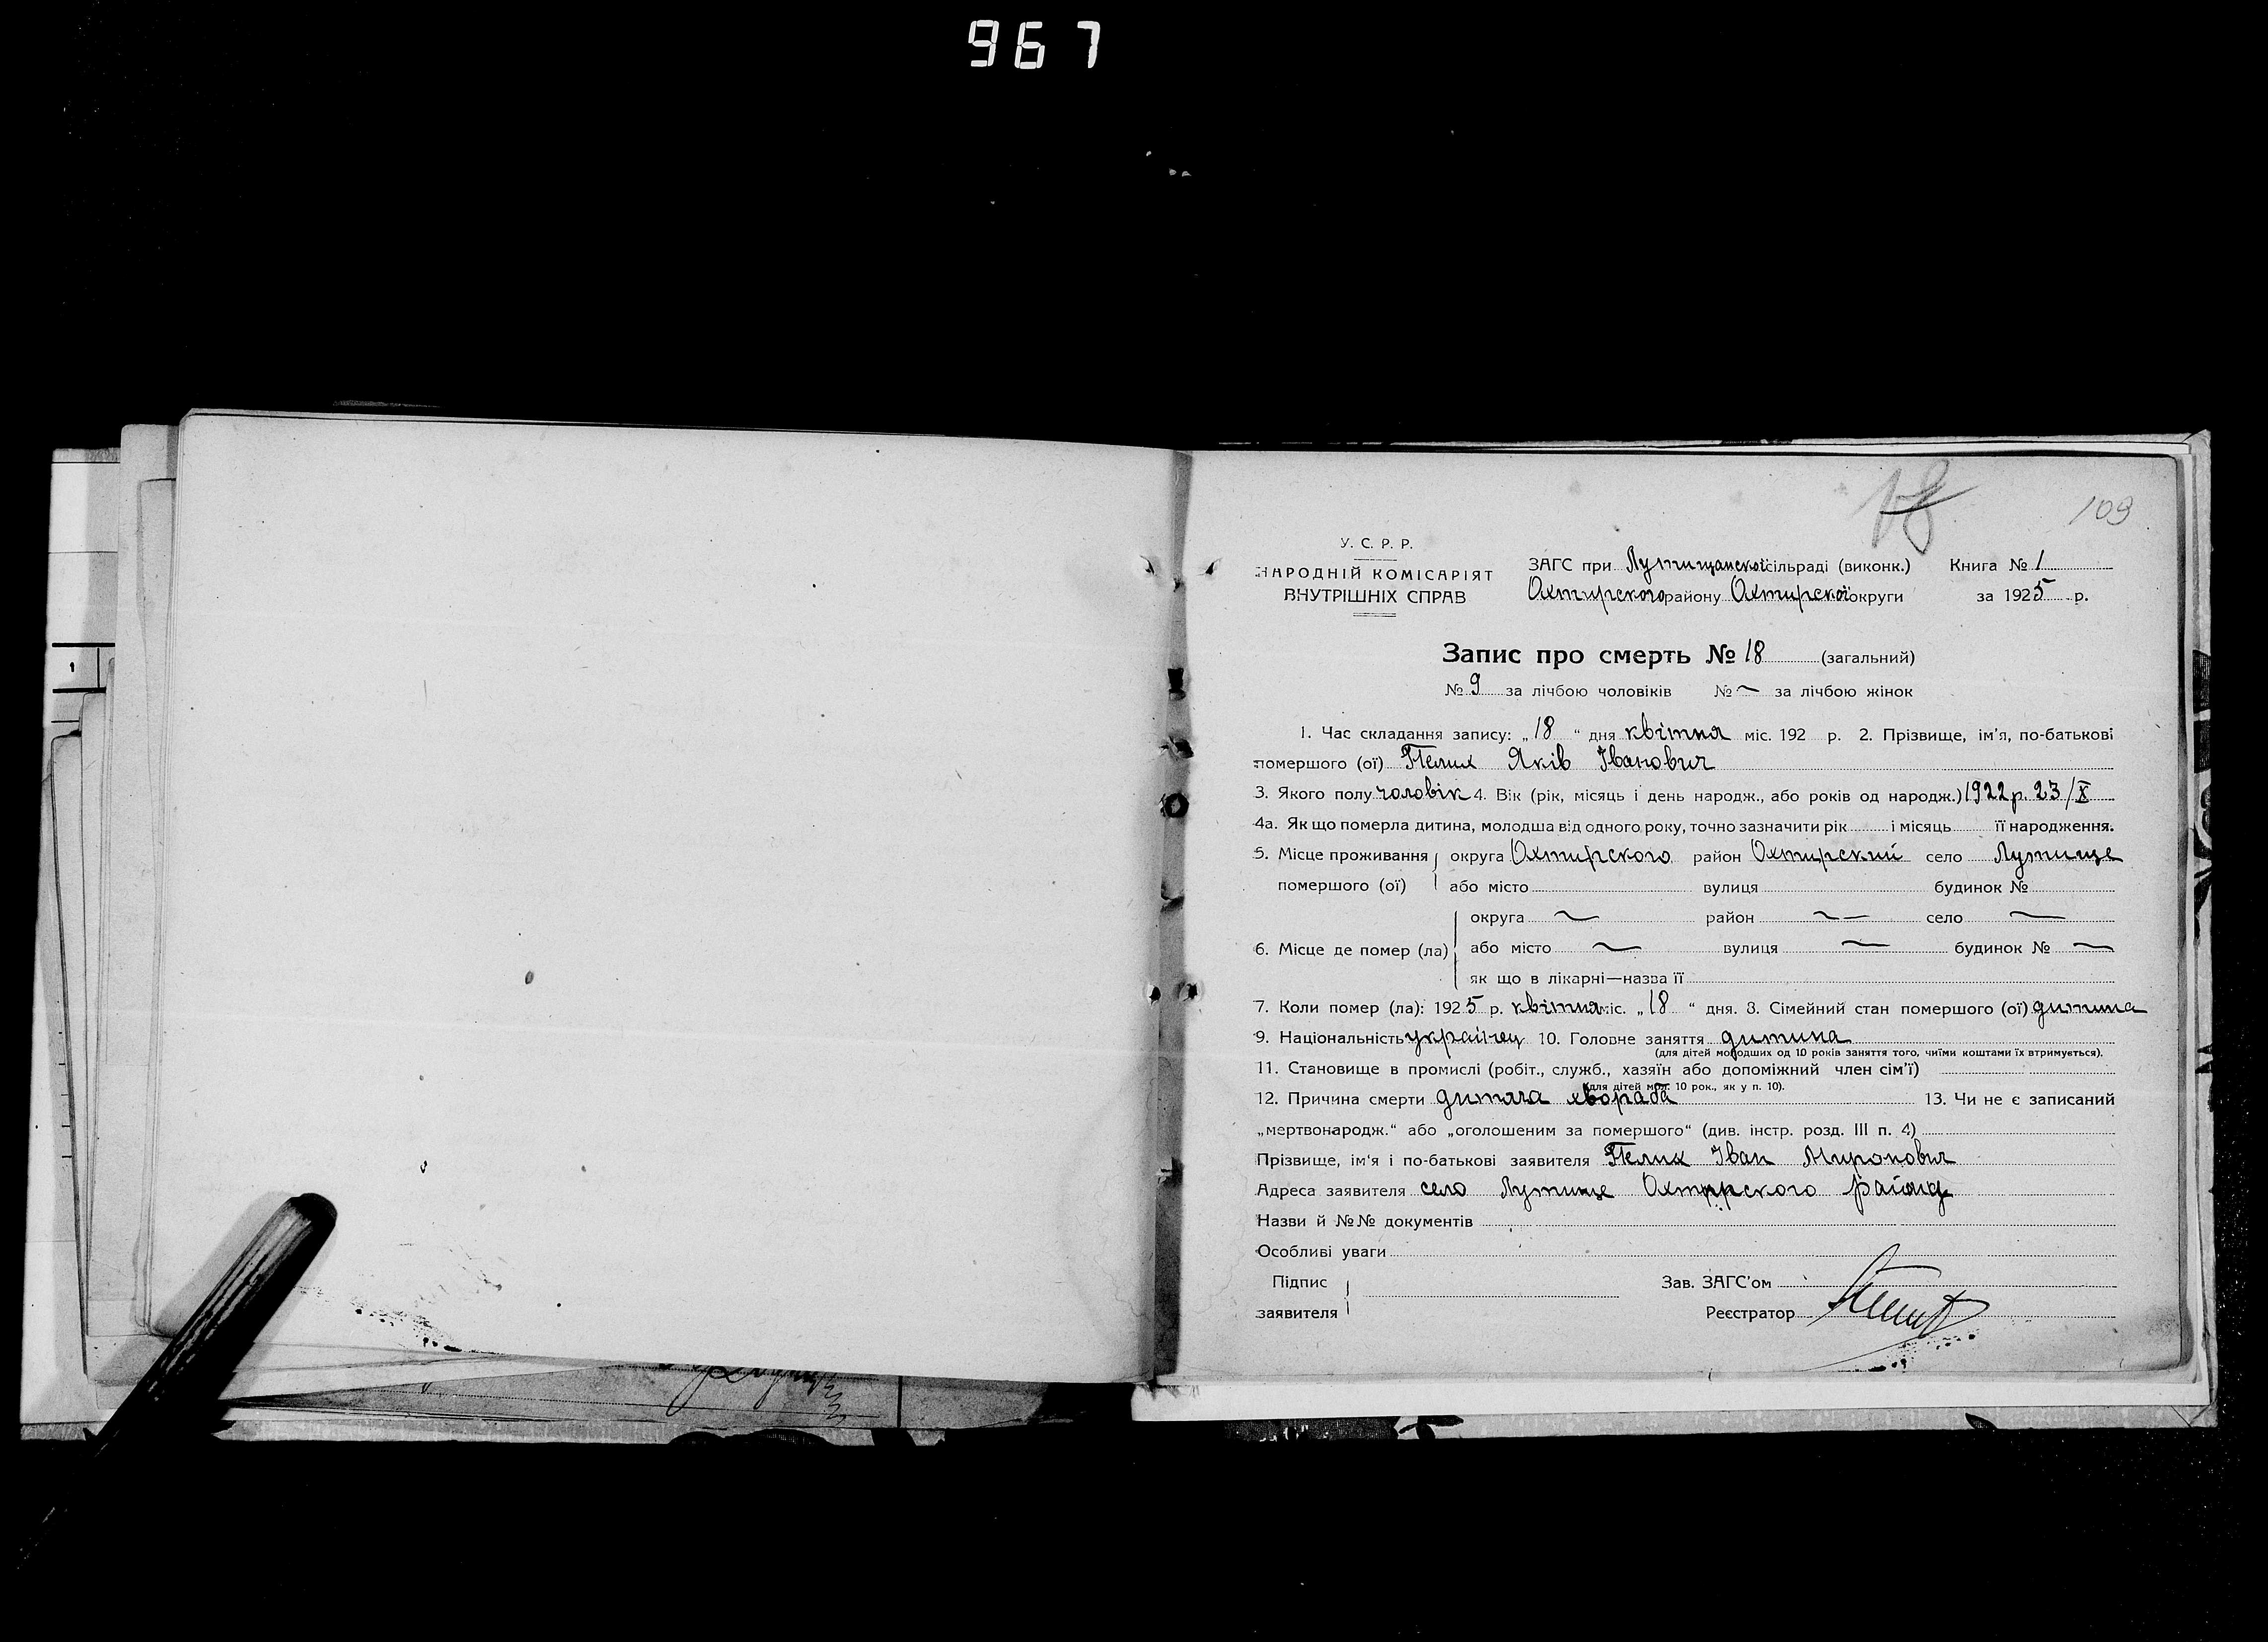 967
109
У. С. Р. Р.
НАРОДНІЙ КОМІСАРІЯТ
ВНУТРІШНІХ СПРАВ
ЗАГС при Лутищанскої сільраді (виконк.) Книга № 1
Охтирского району Охтирскої округи за 1925 р.
Запис про смерть № 18 (загальний)
№ 9 за лічбою чоловіків № — за лічбою жінок
1. Час складання запису: „18“ дня квітня міс. 192 р. 2. Прізвище, ім’я, по-батькові
помершого (ої) Пелих Яків Іванович
3. Якого полу чоловік 4. Вік (рік, місяць і день народж., або років од народж.) 1922 р. 23/X
4а. Як що померла дитина, молодша від одного року, точно зазначити рік і місяць її народження.
5. Місце проживання округа Охтирского район Охтирский село Лутище
помершого (ої) або місто вулиця будинок №
округа — район — село —
6. Місце де помер (ла) або місто — вулиця — будинок № —
як що в лікарні—назва її
7. Коли помер (ла): 1925 р. квітня міс. „18“ дня. 8. Сімейний стан помершого (ої) дитина
9. Національність українец 10. Головне заняття дитина
(для дітей молодших од 10 років заняття того, чиїми коштами їх втримується).
11. Становище в промислі (робіт., служб., хазяїн або допоміжний член сім’ї)
(для дітей мол. 10 рок., як у п. 10).
12. Причина смерти дитяча хвораба 13. Чи не є записаний
„мертвонародж.“ або „оголошеним за помершого“ (див. інстр. розд. III п. 4)
Прізвище, ім’я і по-батькові заявителя Пелих Іван Миронович
Адреса заявителя село Лутище Охтирского району
Назви й №№ документів
Особливі уваги
Підпис Зав. ЗАГС’ом
заявителя Реєстратор